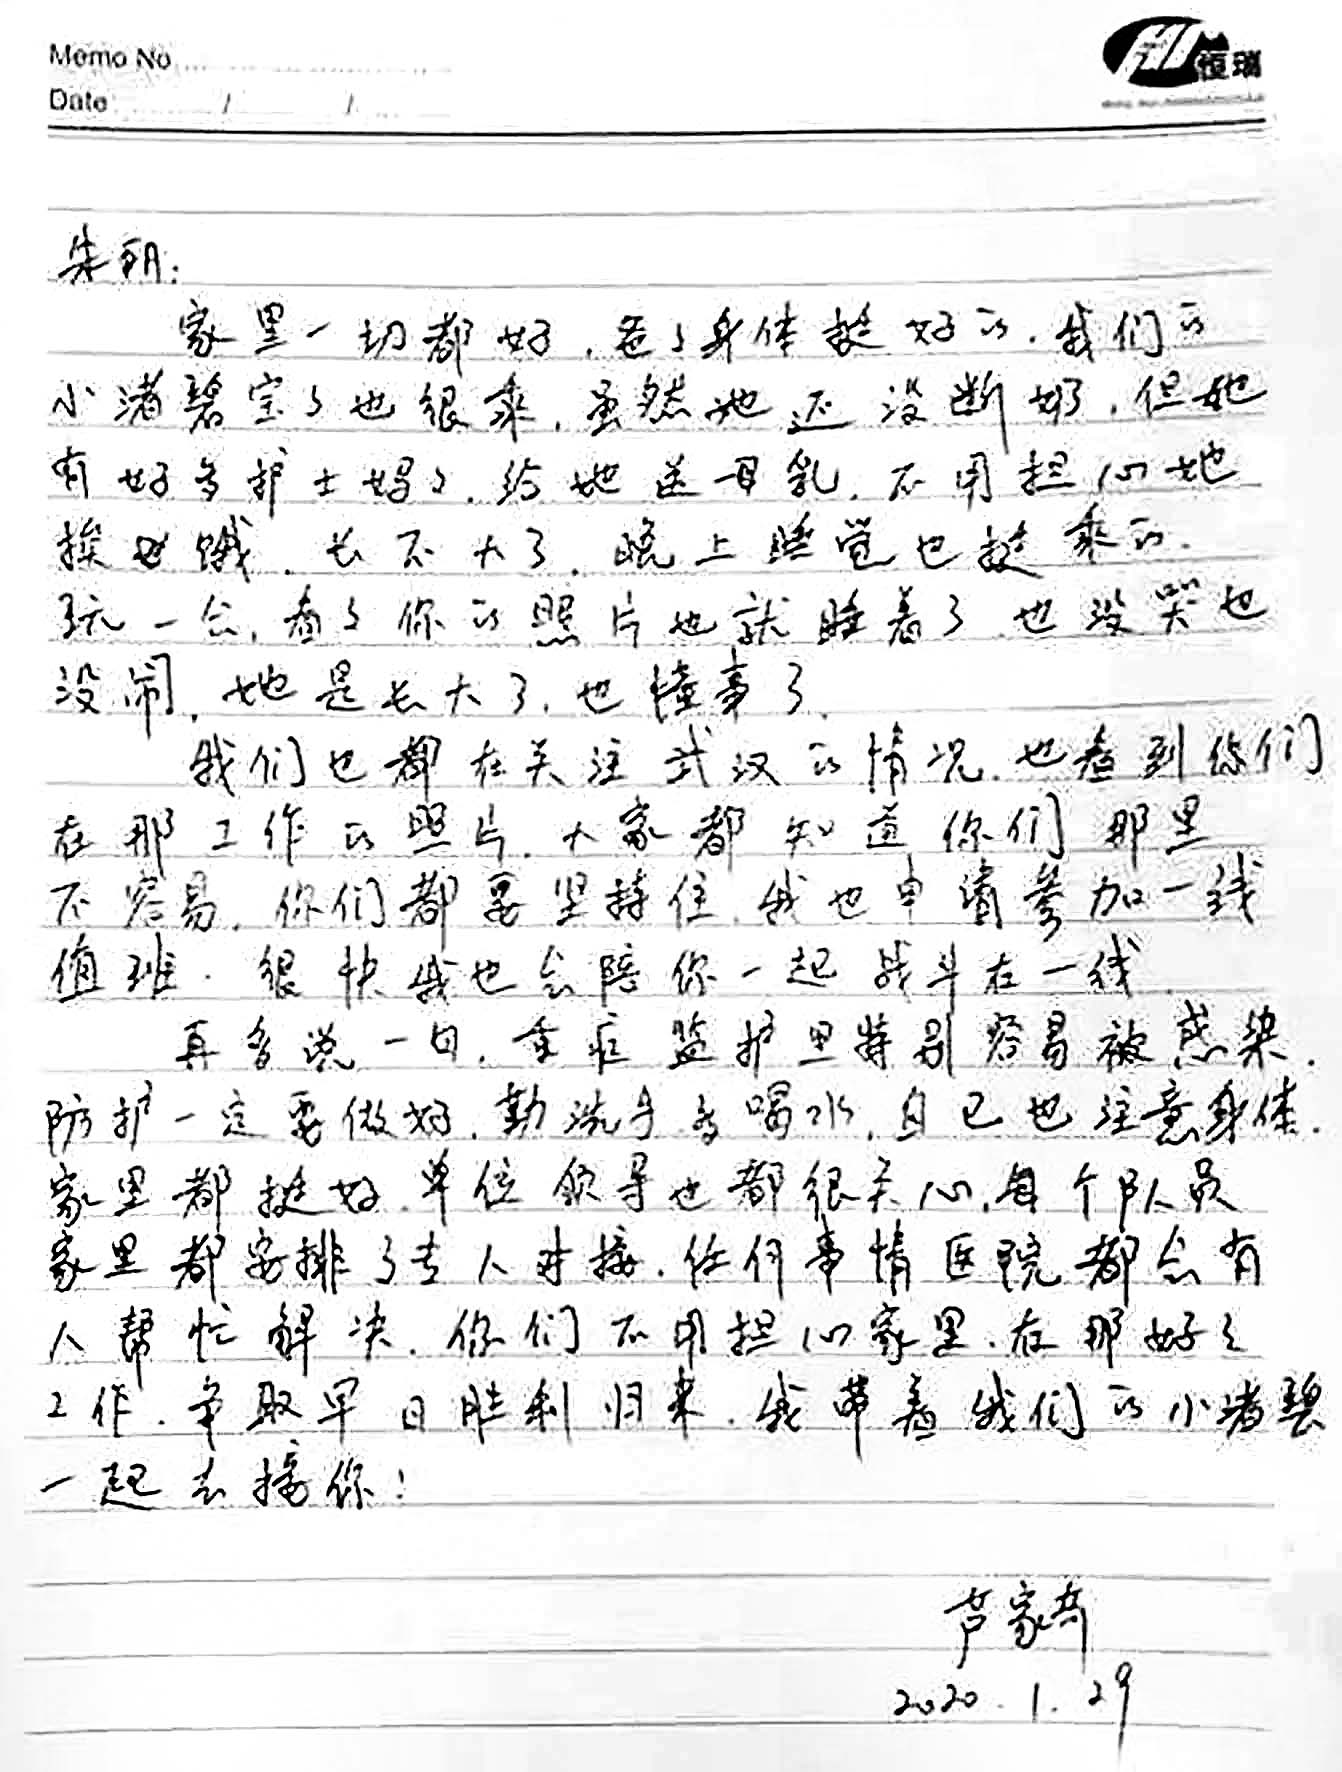 Memo No
Date / /
恒瑞
朱明:
家里一切都好,爸爸身体挺好的.我们的
小渚碧宝宝也很乖,虽然她还没断奶,但她
有好多护士妈妈,给她送母乳,不用担心她
挨饿,长不大了,晚上睡觉也挺乖的.
玩一会,看看你的照片也就睡着了,也没哭也
没闹,她是长大了,也懂事了.
我们也都在关注武汉的情况,也看到你们
在那工作的照片,大家都知道你们那里
不容易,你们都要坚持住,我也申请参加一线
值班.很快我也会陪你一起战斗在一线.
再多说一句,重症监护里特别容易被感染.
防护一定要做好,勤洗手多喝水,自己也注意身体.
家里都挺好,单位领导也都很关心,每个队员
家里都安排了专人对接.任何事情医院都会有
人帮忙解决,你们不用担心家里.在那好好
工作.争取早日胜利归来.我带着我们的小渚碧
一起去接你!
芦家齐
2020.1.29